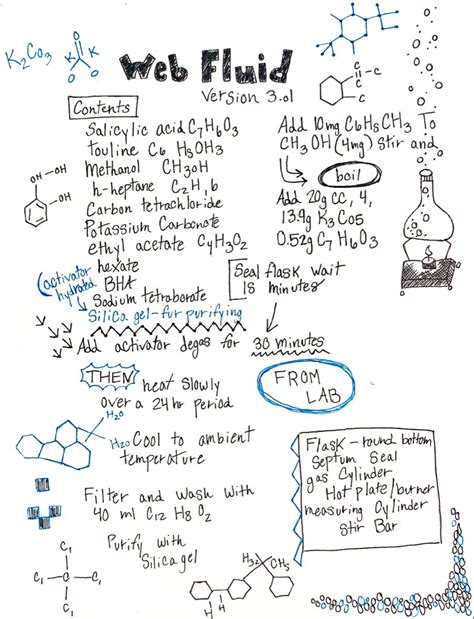 K2CO3
K K
Web Fluid
Version 3.01
Contents
Salicylic acid C7H6O3
touline C6 H5OH3
Methanol CH3OH
h-heptane C2H,6
Carbon tetrachloride
Potassium Carbonate
ethyl acetate C4H3O2
hexate
BHA
Sodium tetraborate
Silica gel-fur purifying
activator
hydrated
OH
OH
C
C
Add 10mg C6H5CH3 To
CH3OH (4mg) stir and
boil
Add 20g CC, 4,
13.9g K3CO5
0.52g C7H6O3
Seal flask wait
18 minutes
Add activator degas for 30 minutes
THEN heat slowly
over a 24 hr period
FROM
LAB
H2O
H2O Cool to ambient
temperature
Filter and Wash with
40 ml C12 H8 O2
Purify with
Silica gel
Flask-round bottom
Septum Seal
gas Cylinder
Hot plate/burner
measuring Cylinder
Stir Bar
C1
C1 C C1
C1
H3C CH3
H